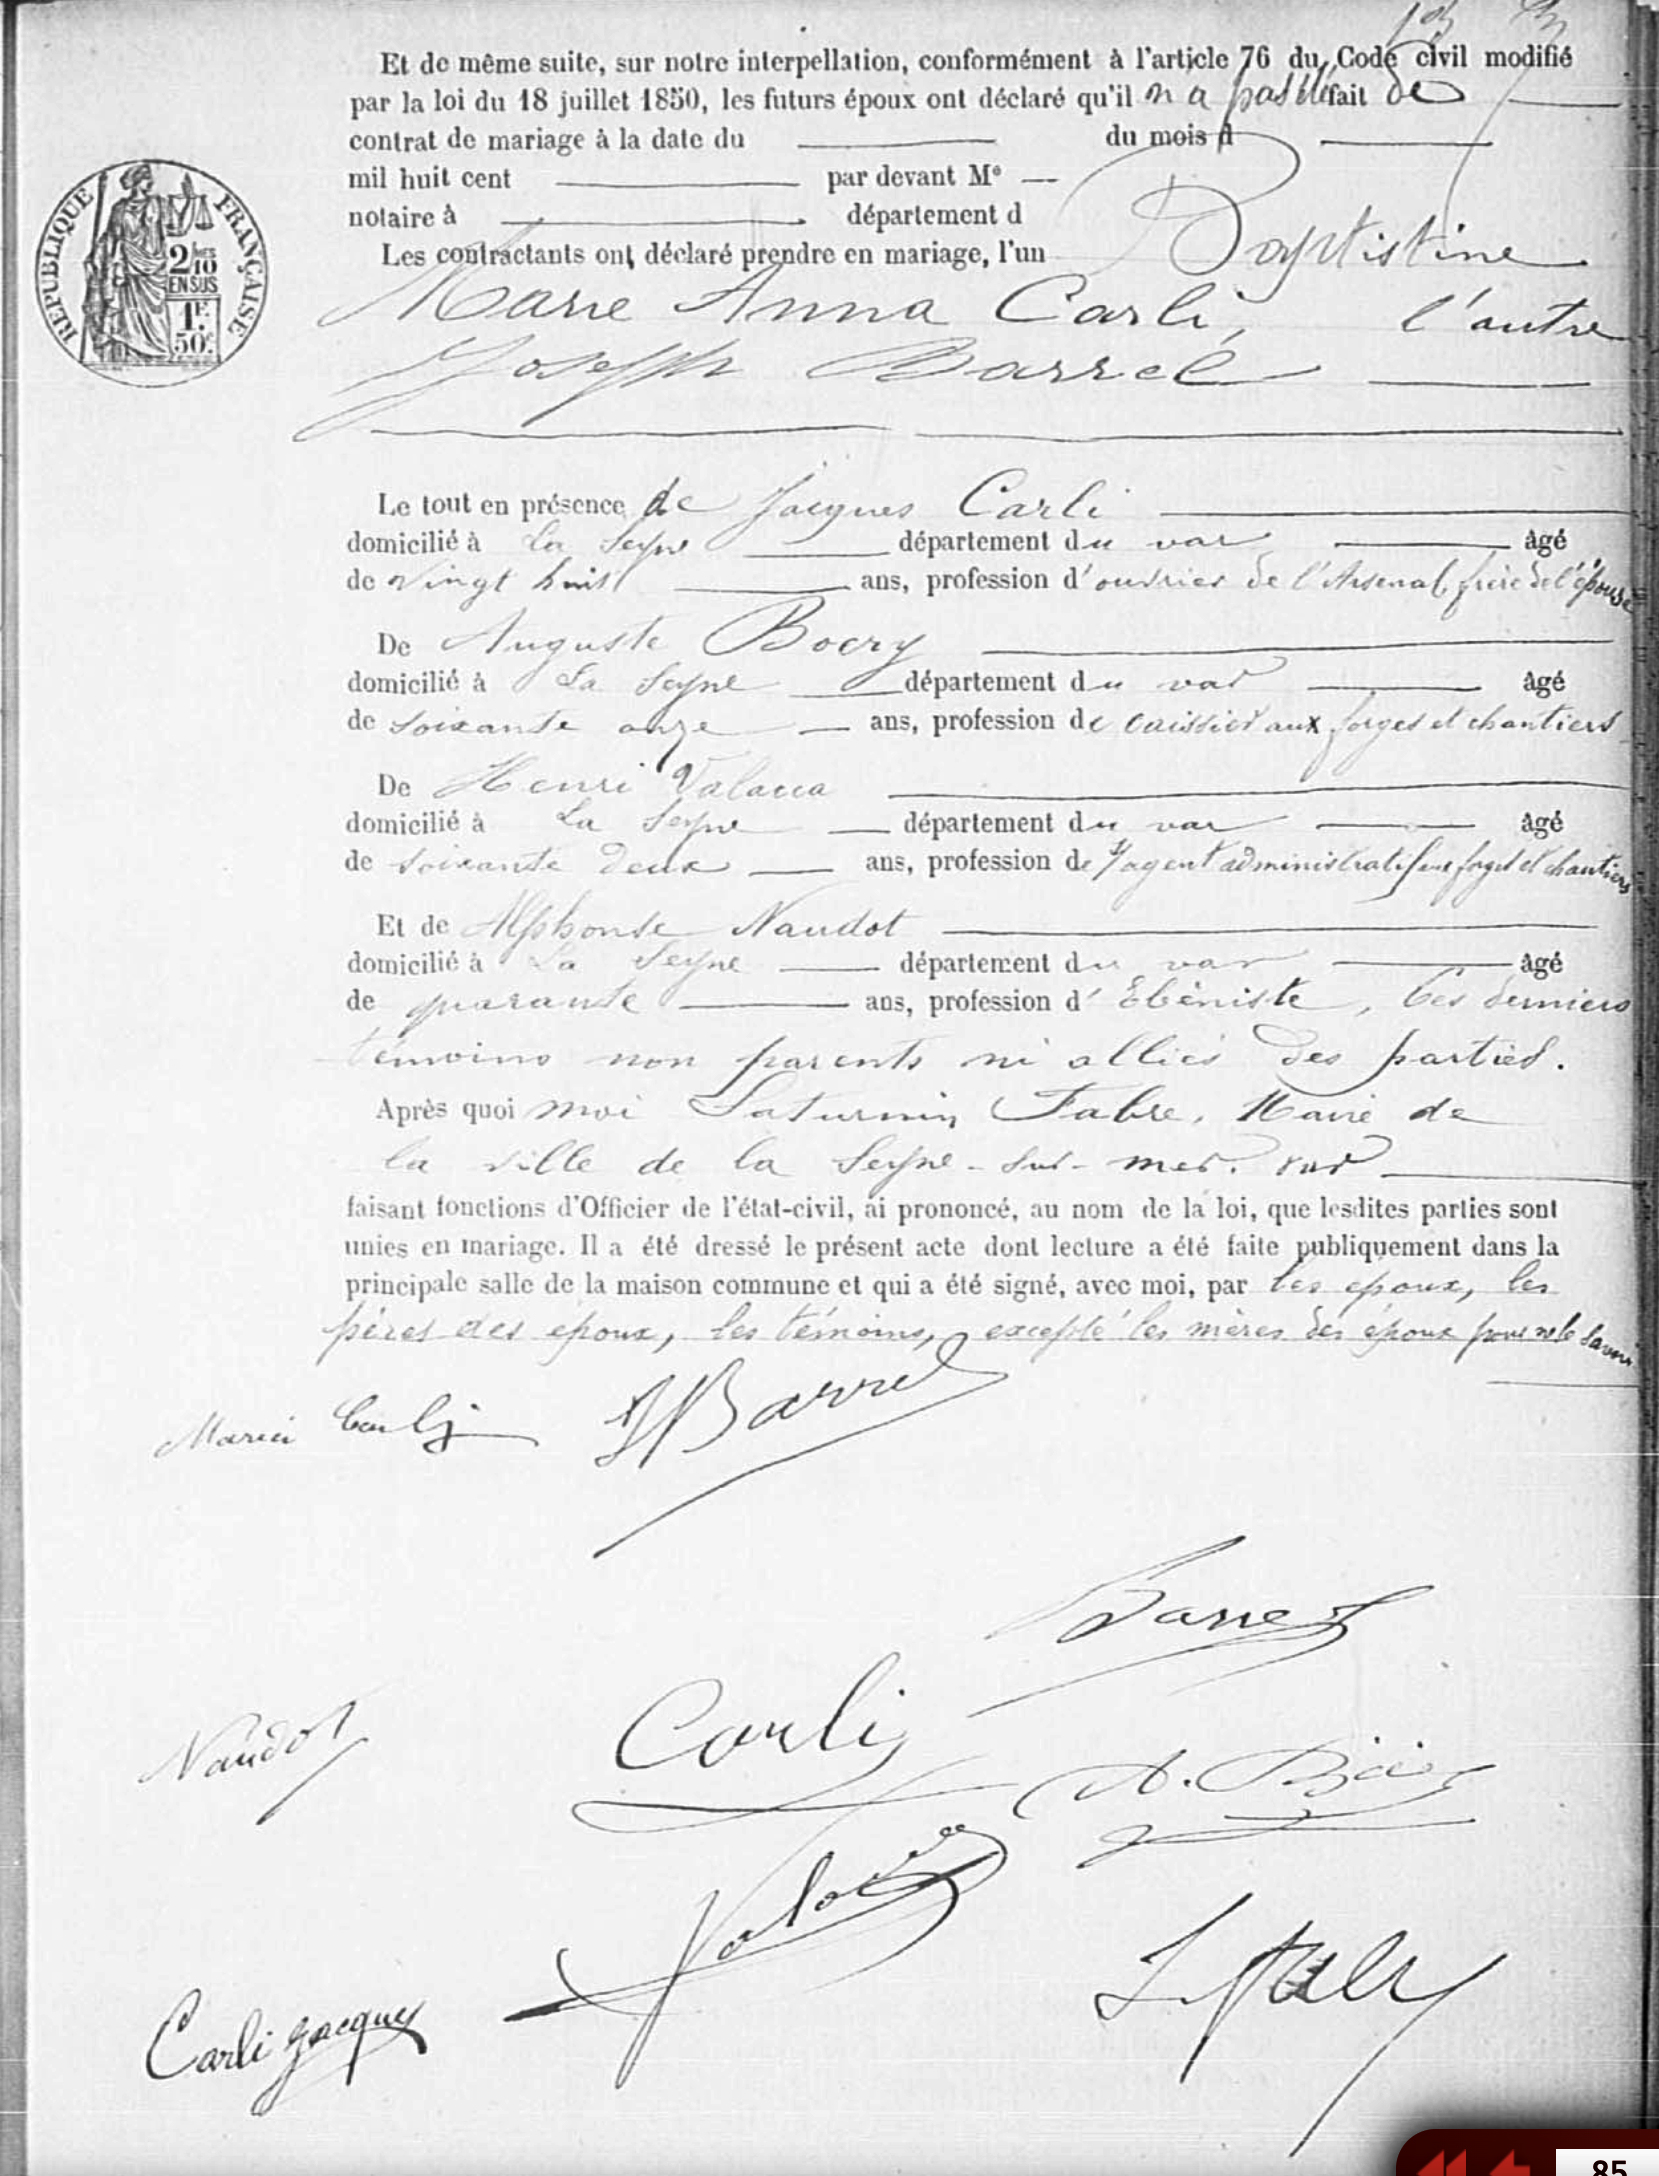 Et de même suite, sur notre interpellation, conformément à l'article 76 du Code civil modifié
par la loi du 18 juillet 1850, les futurs époux ont déclaré qu'il n'a pas été fait de
contrat de mariage à la date du du mois d
mil huit cent par devant Me
notaire à département d
RÉPUBLIQUE FRANÇAISE
2/10
EN SUS
1F.
50c.
Les contractants ont déclaré prendre en mariage, l'un Baptistine
Marie Anna Carli, l'autre
Joseph Barrel
Le tout en présence de Jacques Carli
domicilié à La Seyne département du var âgé
de vingt huit ans, profession d'ouvrier de l'Arsenal, frère de l'épouse
De Auguste Boery
domicilié à La Seyne département du var âgé
de soixante onze ans, profession de caissier aux forges et chantiers
De Henri Valacca
domicilié à La Seyne département du var âgé
de soixante deux ans, profession de agent administratif aux forges et chantiers
Et de Alphonse Naudot
domicilié à La Seyne département du var âgé
de quarante ans, profession d'Ebéniste, Ces derniers
témoins non parents ni alliés des parties.
Après quoi moi Saturnin Fabre, Maire de
la ville de la Seyne-sur-mer, var
faisant fonctions d'Officier de l'état-civil, ai prononcé, au nom de la loi, que lesdites parties sont
unies en mariage. Il a été dressé le présent acte dont lecture a été faite publiquement dans la
principale salle de la maison commune et qui a été signé, avec moi, par les époux, les
pères des époux, les témoins, excepté les mères des époux pour ne le savoir
Maria Carli JBarrel
Barrel
Naudot Carli
Carli Jacques
85